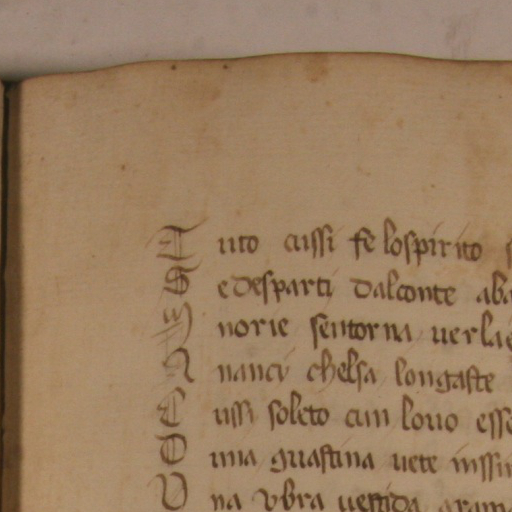 T uto cussi fe lospirito s
S edesparti dalconte aba
I norie sentorna uerlae
A nanci chelsa longaste
C ussi soleto cun louo esse
O uina guastina uete inssi
V na vbra uestida aram